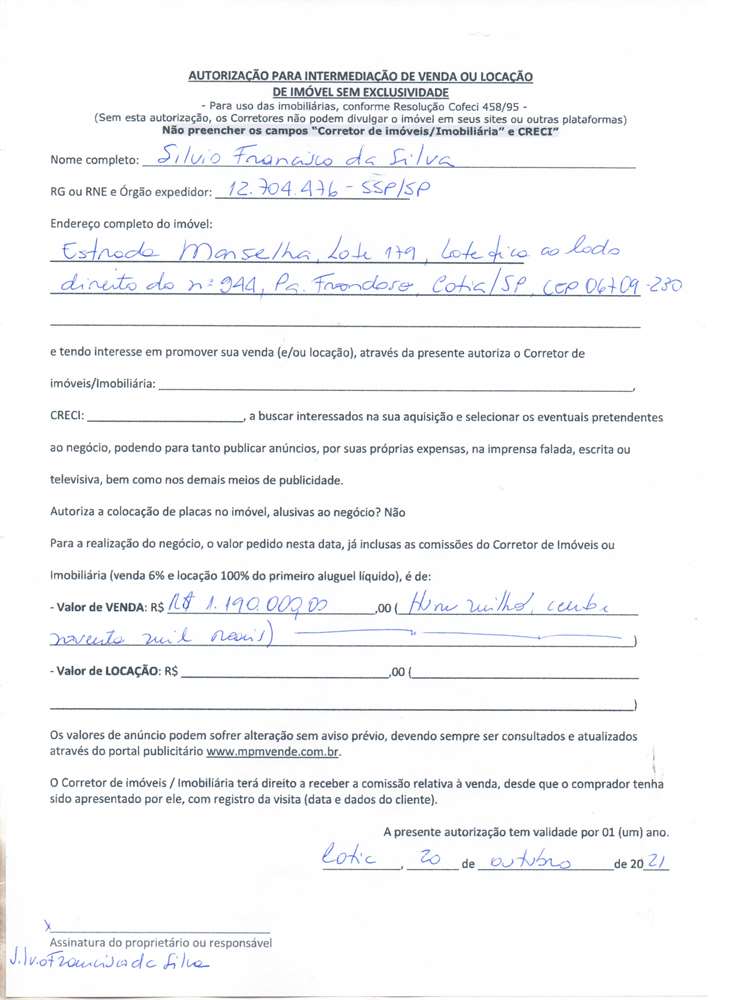 AUTORIZAÇÃO PARA INTERMEDIAÇÃO DE VENDA OU LOCAÇÃO
DE IMÓVEL SEM EXCLUSIVIDADE
- Para uso das imobiliárias, conforme Resolução Cofeci 458/95 -
(Sem esta autorização, os Corretores não podem divulgar o imóvel em seus sites ou outras plataformas)
Não preencher os campos "Corretor de imóveis/Imobiliária" e CRECI"
Nome completo: Silvio Francisco da Silva
RG ou RNE e Órgão expedidor: 12.704.476 - SSP/SP
Endereço completo do imóvel:
Estrada Marselha, Lote 179, Lote fica ao lado
direito do nº 944, Pq. Frondoso, Cotia/SP, CEP 06709-230
e tendo interesse em promover sua venda (e/ou locação), através da presente autoriza o Corretor de
imóveis/Imobiliária: ,
CRECI: , a buscar interessados na sua aquisição e selecionar os eventuais pretendentes
ao negócio, podendo para tanto publicar anúncios, por suas próprias expensas, na imprensa falada, escrita ou
televisiva, bem como nos demais meios de publicidade.
Autoriza a colocação de placas no imóvel, alusivas ao negócio? Não
Para a realização do negócio, o valor pedido nesta data, já inclusas as comissões do Corretor de Imóveis ou
Imobiliária (venda 6% e locação 100% do primeiro aluguel líquido), é de:
- Valor de VENDA: R$ R$ 1.190.000,00 ,00 ( Hum milhão, cento e
noventa mil reais) )
- Valor de LOCAÇÃO: R$ ,00 (
)
Os valores de anúncio podem sofrer alteração sem aviso prévio, devendo sempre ser consultados e atualizados
através do portal publicitário www.mpmvende.com.br.
O Corretor de imóveis / Imobiliária terá direito a receber a comissão relativa à venda, desde que o comprador tenha
sido apresentado por ele, com registro da visita (data e dados do cliente).
A presente autorização tem validade por 01 (um) ano.
Cotia, 20 de outubro de 2021
x
Assinatura do proprietário ou responsável
Silvio Francisco da Silva